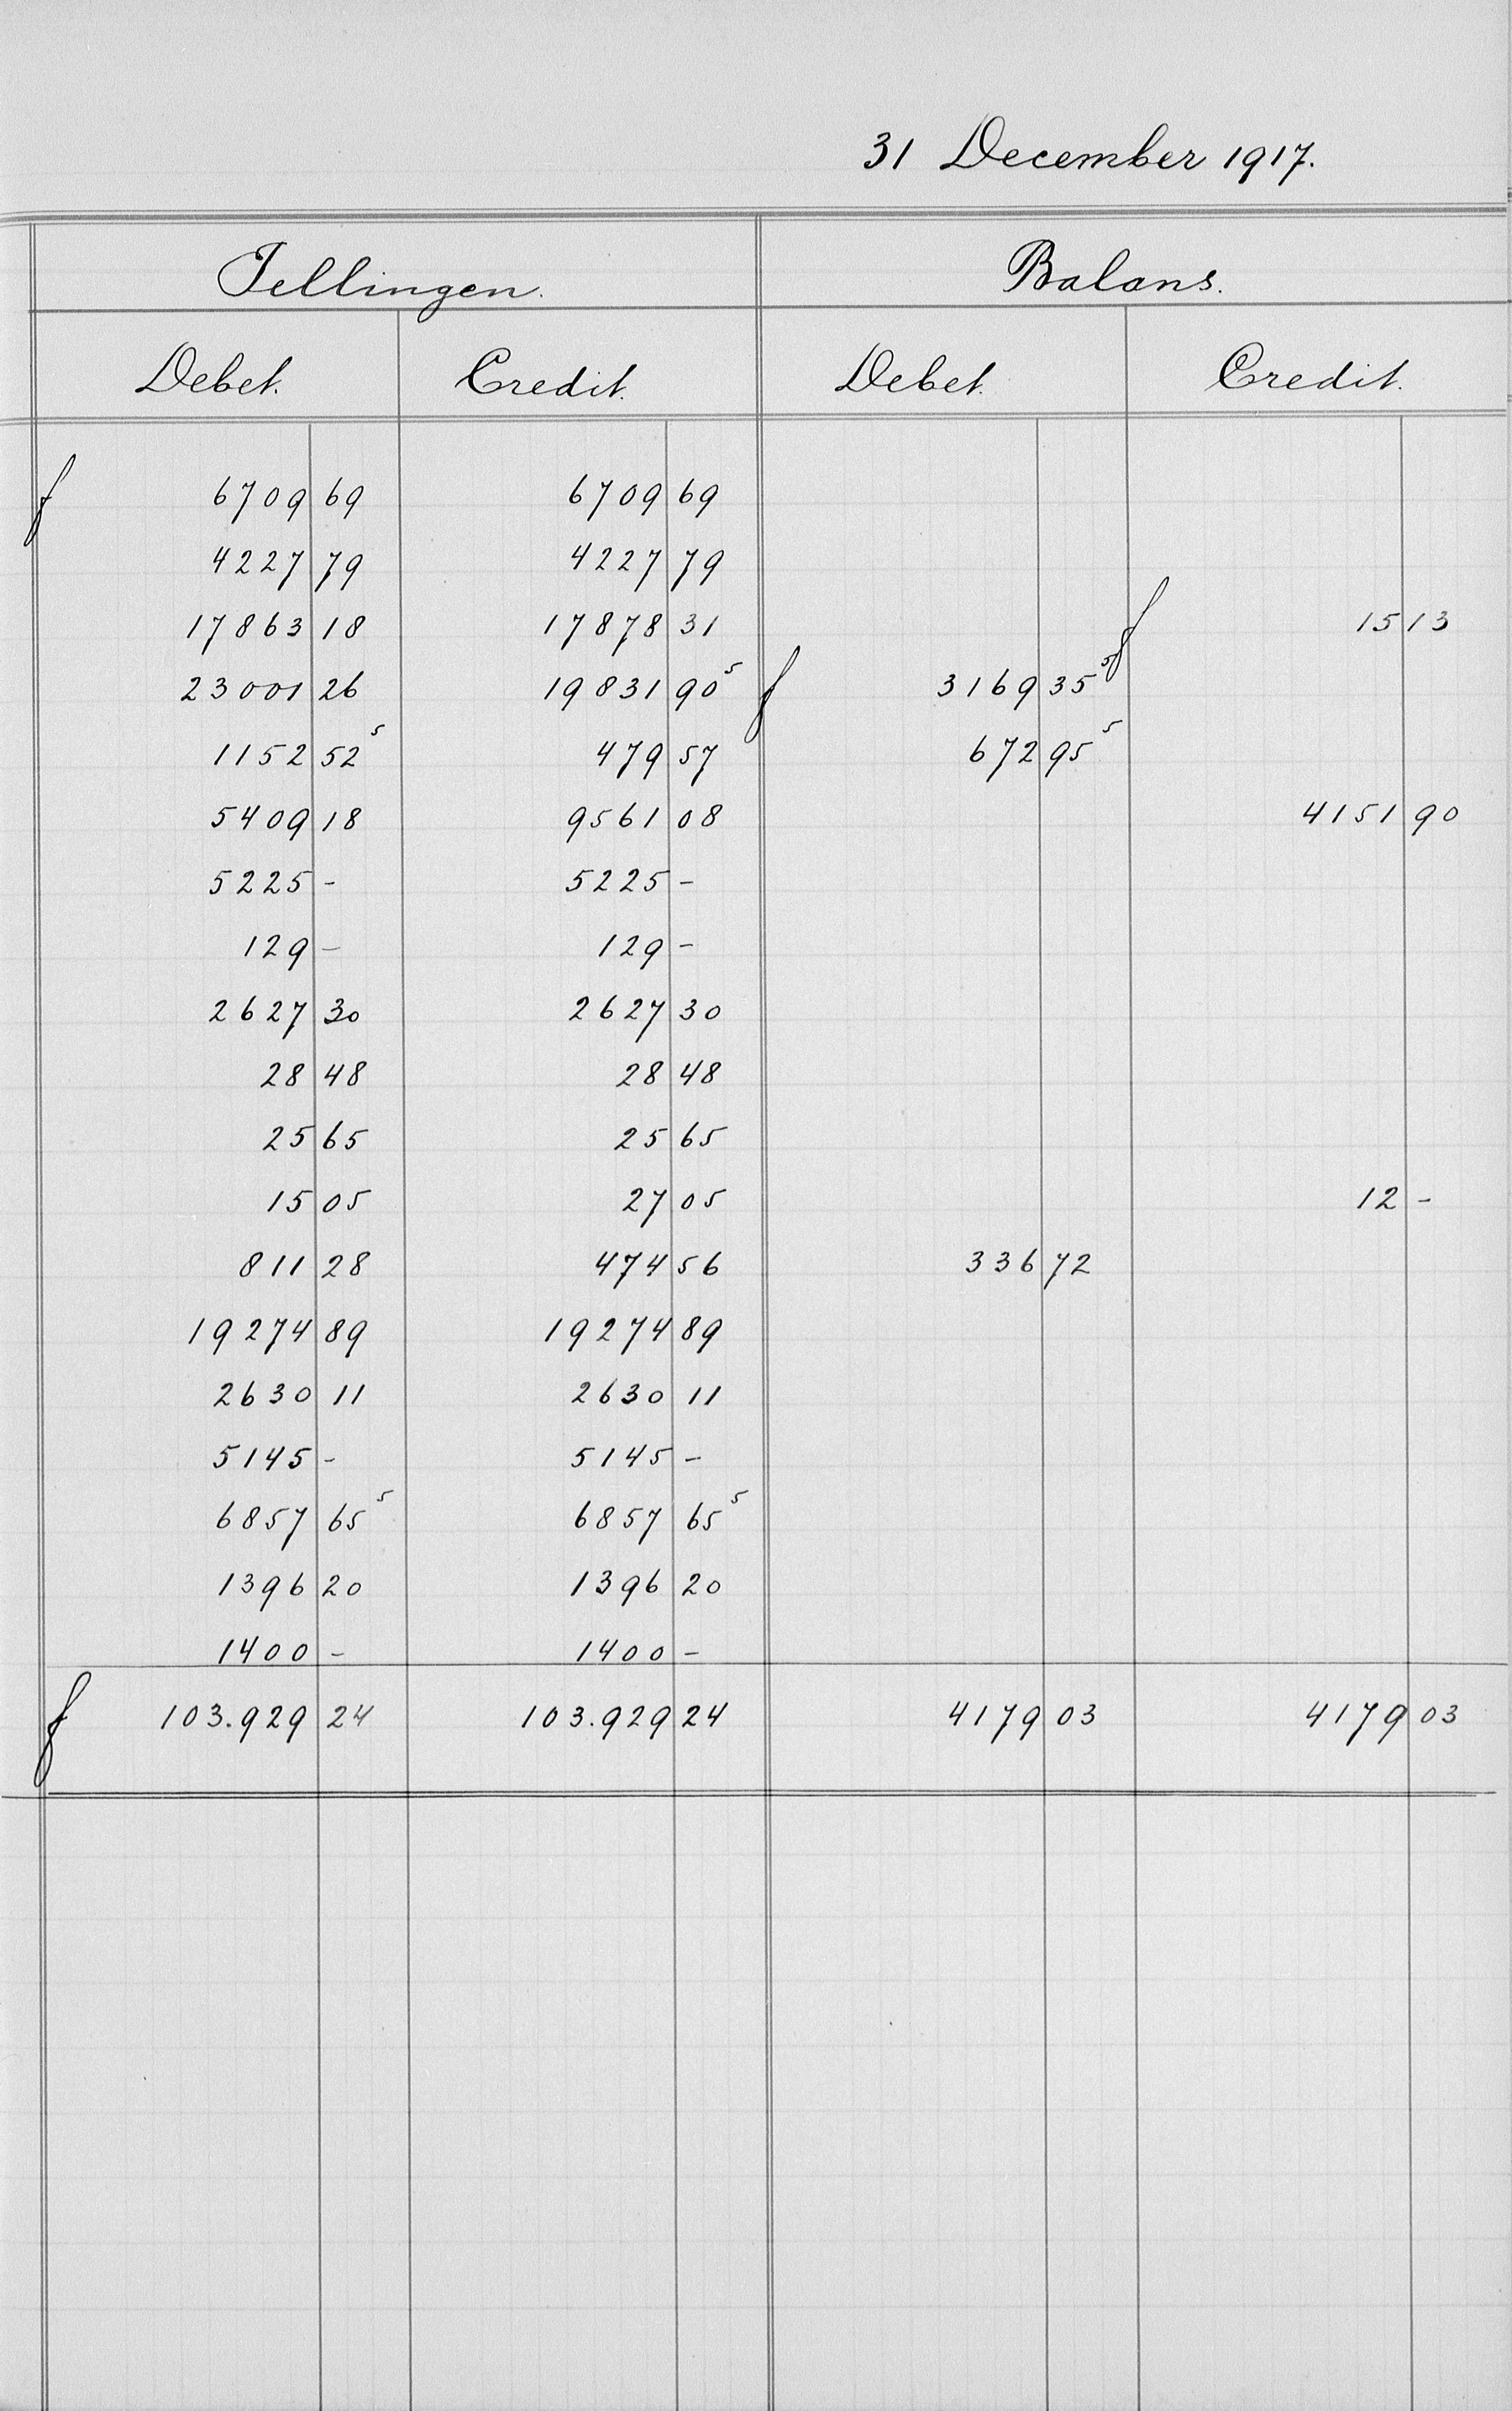 31 December 1917.
Tellingen. Balans.
Debet. Credit. Debet. Credit.
f 6709 69 6709 69
4227 79 4227 79
17863 18 17878 31 f 15 13
23001 26 19831 90⁵ f 3169 35⁵
1152 52⁵ 479 57 672 95⁵
5409 18 9561 08 4151 90
5225 - 5225 -
129 - 129 -
2627 30 2627 30
28 48 28 48
25 65 25 65
15 05 27 05 12 -
811 28 474 56 336 72
19274 89 19274 89
2630 11 2630 11
5145 - 5145 -
6857 65⁵ 6857 65⁵
1396 20 1396 20
1400 - 1400 -
f 103.929 24 103.929 24 4179 03 4179 03